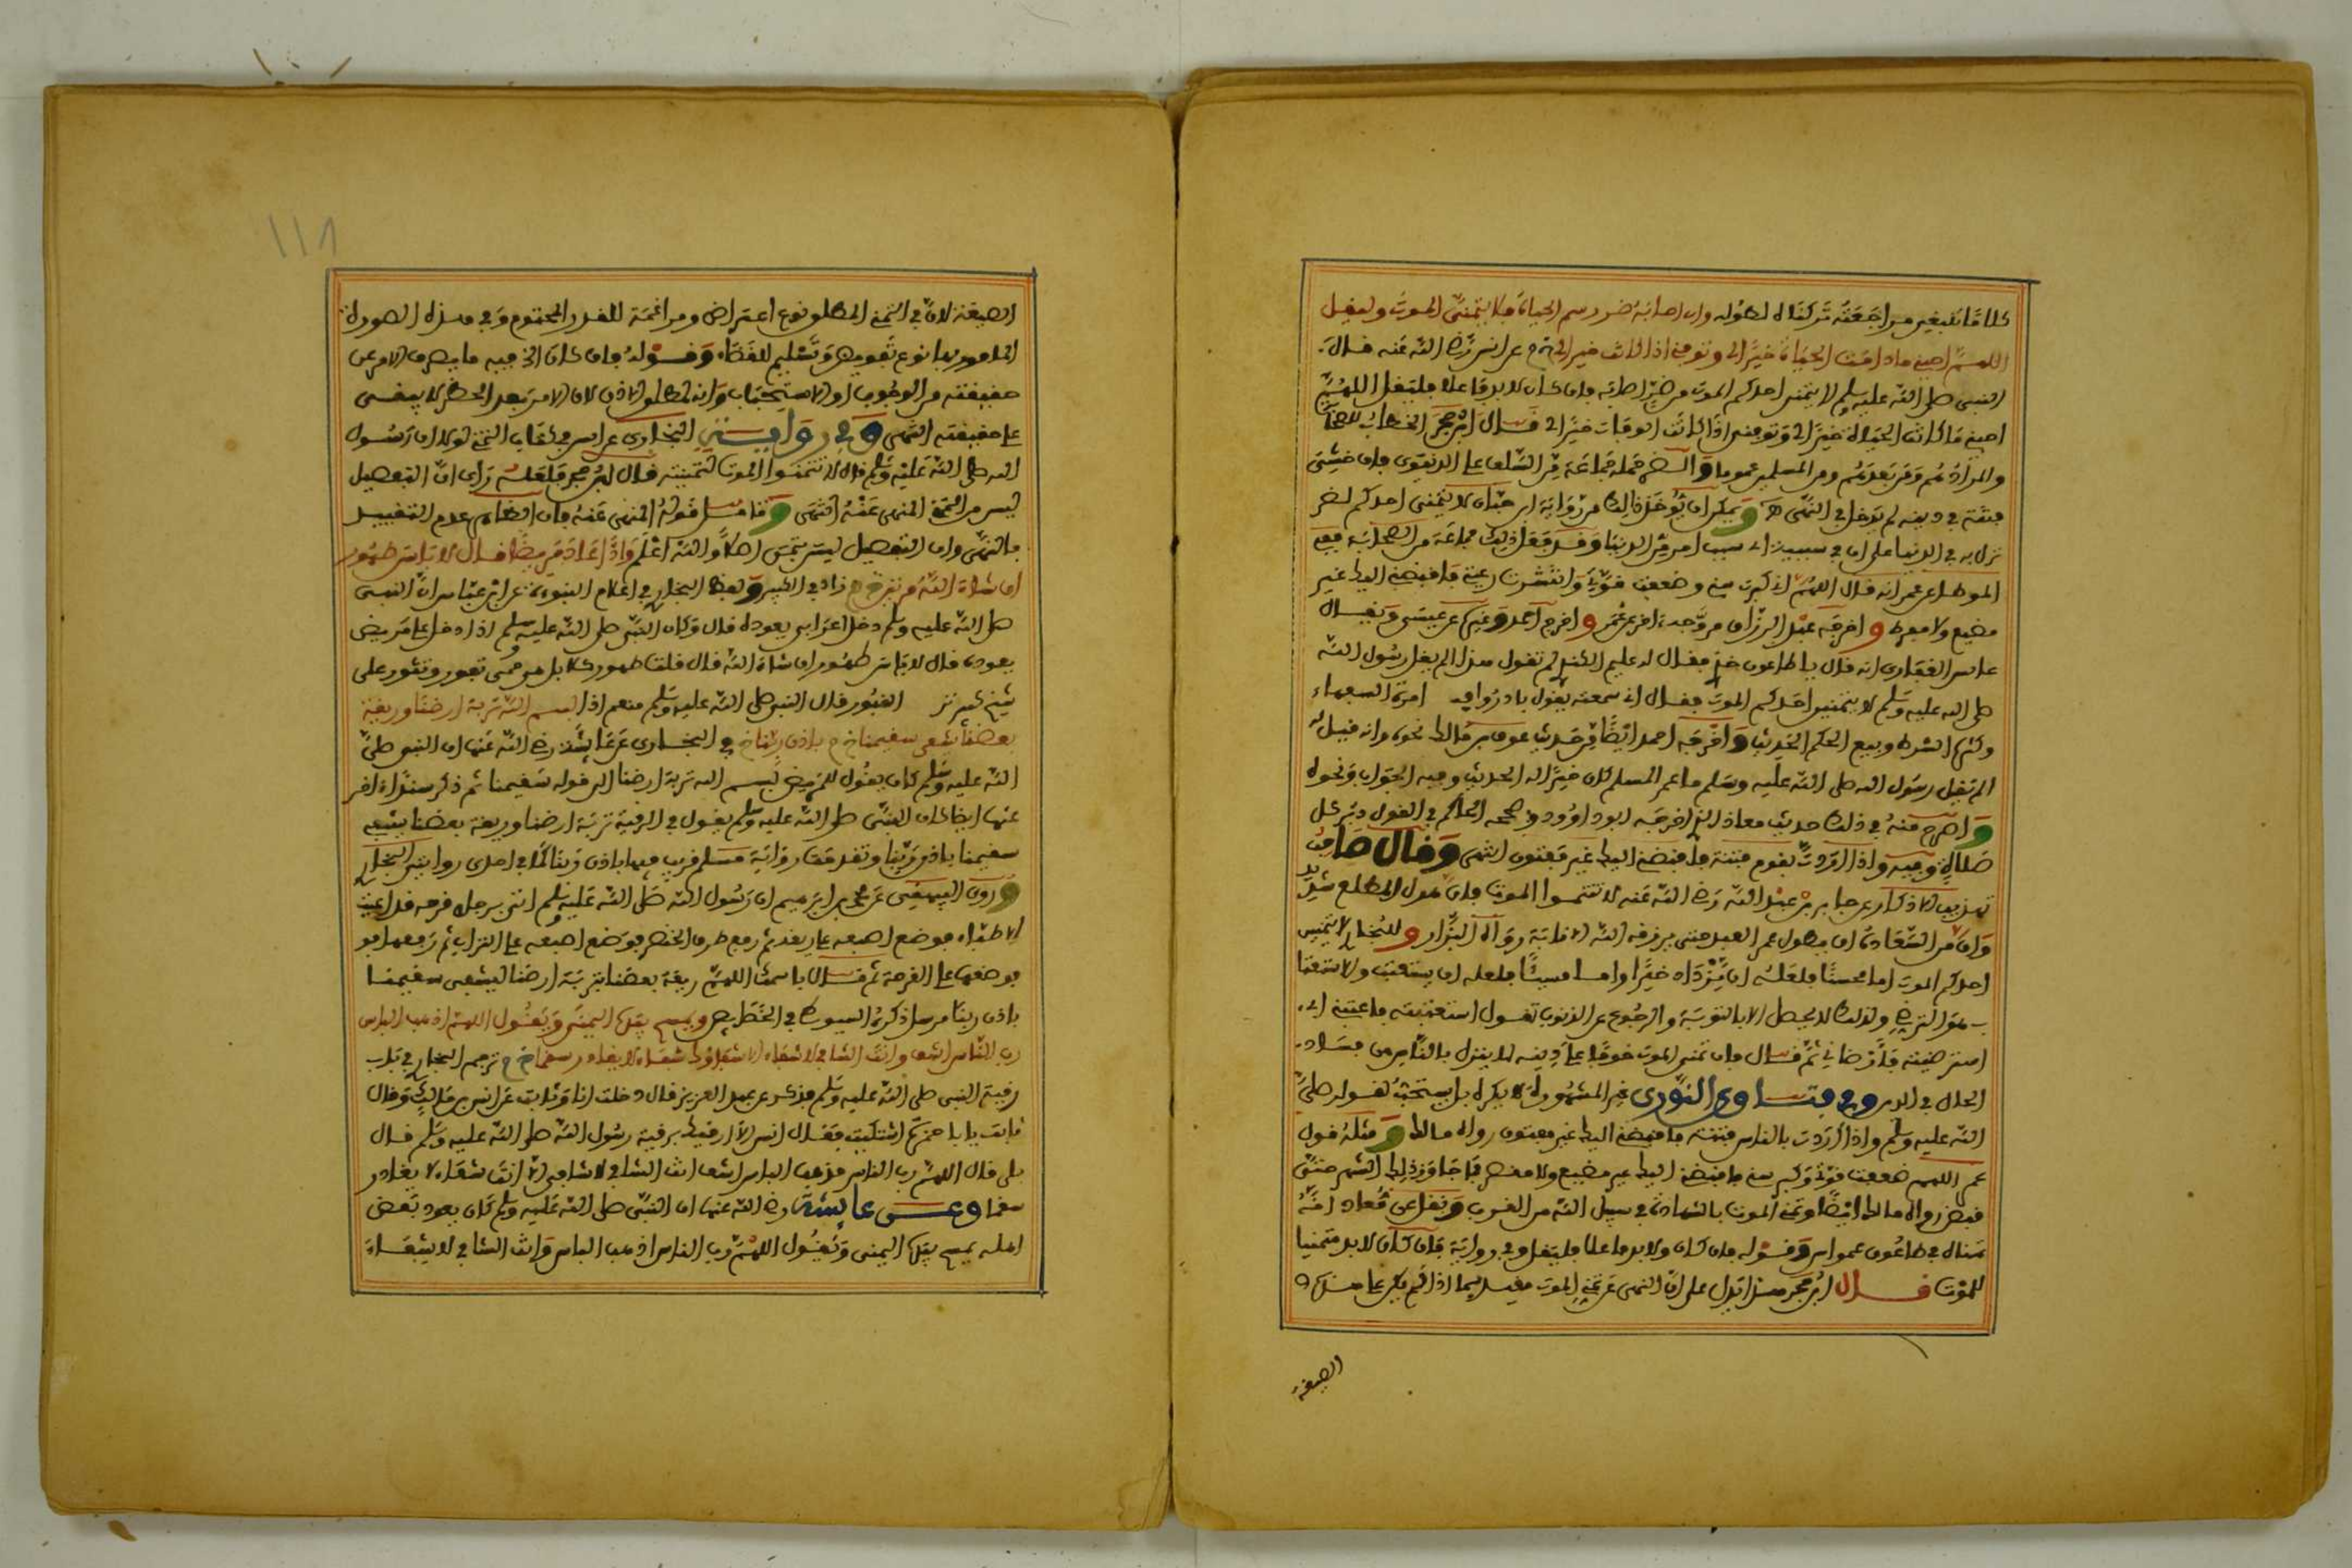 كلامًا بغير مراجعته تركناه لطوله وان اصابه ضر وسم الحياة فلا يتمنى الموت وليقل
اللهم احيني ما دامت الحياة خيرا لي وتوفني اذا كانت خيرا لي خ م عن انس رضي الله عنه قال
النبي صلى الله عليه وسلم لا يتمنين احدكم الموت من ضر اصابه فان كان لا بد فاعلا فليقل اللهم
احيني ما كانت الحياة خيرا لي وتوفني اذا كانت الوفاة خيرا لي قال ابن حجر الخطاب للصحابة
والمراد هم ومن بعدهم ومن المسلمين عموما والضر حمله جماعة من السلف على الدنيوي فان خشي
فتنة في دينه لم يدخل في النهي ويمكن ان يؤخذ ذلك من رواية ابن حبان لا يتمنى احدكم لضر
نزل به في الدنيا على ان في سببية اي بسبب امر من الدنيا وقد فعل ذلك جماعة من الصحابة ففي
الموطا عن عمر انه قال اللهم كبرت سني وضعفت قوتي وانتشرت رعيتي فاقبضني اليك غير
مضيع ولا مفرط و اخرجه عبد الرزاق من وجه اخر عن عمر و اخرج احمد وغيره عن عبس ويقال
عابس الغفاري انه قال يا طاعون خذني فقال له عليم الكندي لم تقول هذا الم يقل رسول الله
صلى الله عليه وسلم لا يتمنين احدكم الموت فقال اني سمعته يقول بادروا امرة السفهاء
وكثرة الشرط وبيع الحكم الحديث واخرجه احمد ايضا من حديث عوف بن مالك نحوه وانه قيل له
الم يقل رسول الله صلى الله عليه وسلم ما عمر المسلم كان خيرا له الحديث وفيه الجواب ونحوه
و اصرح منه في ذلك حديث معاذ الذي اخرجه ابو داوود وصححه الحاكم في القول دبر كل
صلاة وفيه واذا اردت بقوم فتنة فاقبضني اليك غير مفتون انتهى وقال صاحب
تهذيب الاذكار عن جابر بن عبد الله رضي الله عنه لا تتمنوا الموت فان هول المطلع شديد
وان من السعادة ان يطول عمر العبد حتى يرزقه الله الانابة رواه البزار و للبخاري لا يتمنين
احدكم الموت اما محسنا فلعله ان يزداد خيرا واما مسيئا فلعله ان يستعتب والاستعتاب
هو الترضي ولذلك لا يحصل الا بالتوبة والرجوع عن الذنوب تقول استعتبته فاعتبني اي
استرضيته فارضاني ثم قال فان تمنى الموت خوفا على دينه لا ينزل بالناس من فساد
الحال في الدين وفي فتاوي النووي غير المشهورة لا يكره بل يستحب لقوله صلى
الله عليه وسلم واذا اردت بالناس فتنة فاقبضني اليك غير مفتون رواه مالك و مثله قول
عمر اللهم ضعفت قوتي وكبر سني فاقبضني اليك غير مضيع ولا مقصر فما جاوز ذلك الشهر حتى
قبض رواه مالك ايضا وتمنى الموت بالشهادة في سبيل الله من القرب ونقل عن معاذ انه
تمناه في طاعون عمواس وقوله فان كان ولا بد فاعلا فليقل وفي رواية فان كان لا بد متمنيا
للموت قال ابن حجر هذا يدل على ان النهي عن تمني الموت مقيد بما اذا لم يكن على هذه
الصيغة
١١٨
الصيغة لان في التمني المطلق نوع اعتراض ومراغمة للقدر المحتوم وفي هذه الصورة
المامور بها نوع تفويض وتسليم للقضاء وقوله فان كان الخ فيه ما يصرف الامر عن
حقيقته من الوجوب او الاستحباب وانه لمطلق الاذن لان الامر بعد الحظر لا يبقى
على حقيقته انتهى وفي رواية البخاري عن انس في كتاب التمني لولا ان رسول
الله صلى الله عليه وسلم قال لا تتمنوا الموت لتمنيته قال ابن حجر فلعله راى ان التفصيل
ليس من التمني المنهي عنه انتهى و تامل قوله المنهي عنه فان الظاهر عدم التقييد
بالنهي وان التفصيل ليس بتمن اصلا والله اعلم واذا عاد مريضا قال لا باس طهور
ان شاء الله مرتين خ زاد في الكبير ولفظ البخاري في اعلام النبوءة عن ابن عباس ان النبي
صلى الله عليه وسلم دخل على اعرابي يعوده قال وكان النبي صلى الله عليه وسلم اذا دخل على مريض
يعوده قال لا باس طهور ان شاء الله قال قلت طهور كلا بل هو حمى تفور وتثور على
شيخ كبير تز القبور فقال النبي صلى الله عليه وسلم فنعم اذا بسم الله تربة ارضنا وريقة
بعضنا يشفى سقيمنا خ م باذن ربنا خ في البخاري عن عائشة رضي الله عنها ان النبي صلى
الله عليه وسلم كان يقول للمريض بسم الله تربة ارضنا الى قوله سقيمنا ثم ذكر سندا اخر
عنها ايضا كان النبي صلى الله عليه وسلم يقول في الرقية تربة ارضنا وريقة بعضنا يشفى
سقيمنا باذن ربنا وتقدمت رواية مسلم قريب فيها باذن ربنا كما في احدى روايتي البخاري
و روى البيهقي عن محمد بن ابراهيم ان رسول الله صلى الله عليه وسلم اتي برجل به قرحة قد اعيت
الاطباء فوضع اصبعه على ريقه ثم رفع طرف الخنصر فوضع اصبعه على التراب ثم رفعها فو
فوضعها على القرحة ثم قال باسمك اللهم ريقة بعضنا بتربة ارضنا ليشفى سقيمنا
باذن ربنا مرسل ذكره السيوطي في الخصايص ويمسح بيده اليمنى ويقول اللهم اذهب الباس
رب الناس اشف وانت الشافي لا شفاء الا شفاؤك شفاء لا يغادر سقما خ م ترجم البخاري في باب
رقية النبي صلى الله عليه وسلم فذكر عن عبد العزيز قال دخلت انا وثابت على انس بن مالك وقال
ثابت يا ابا حمزة اشتكيت فقال انس الا ارقيك برقية رسول الله صلى الله عليه وسلم قال
بلى قال اللهم رب الناس مذهب الباس اشف انت الشافي لا شافي الا انت شفاء لا يغادر
سقما وعن عائشة رضي الله عنها ان النبي صلى الله عليه وسلم كان يعود بعض
اهله يمسح بيده اليمنى ويقول اللهم رب الناس اذهب الباس وانت الشافي لا شفاء